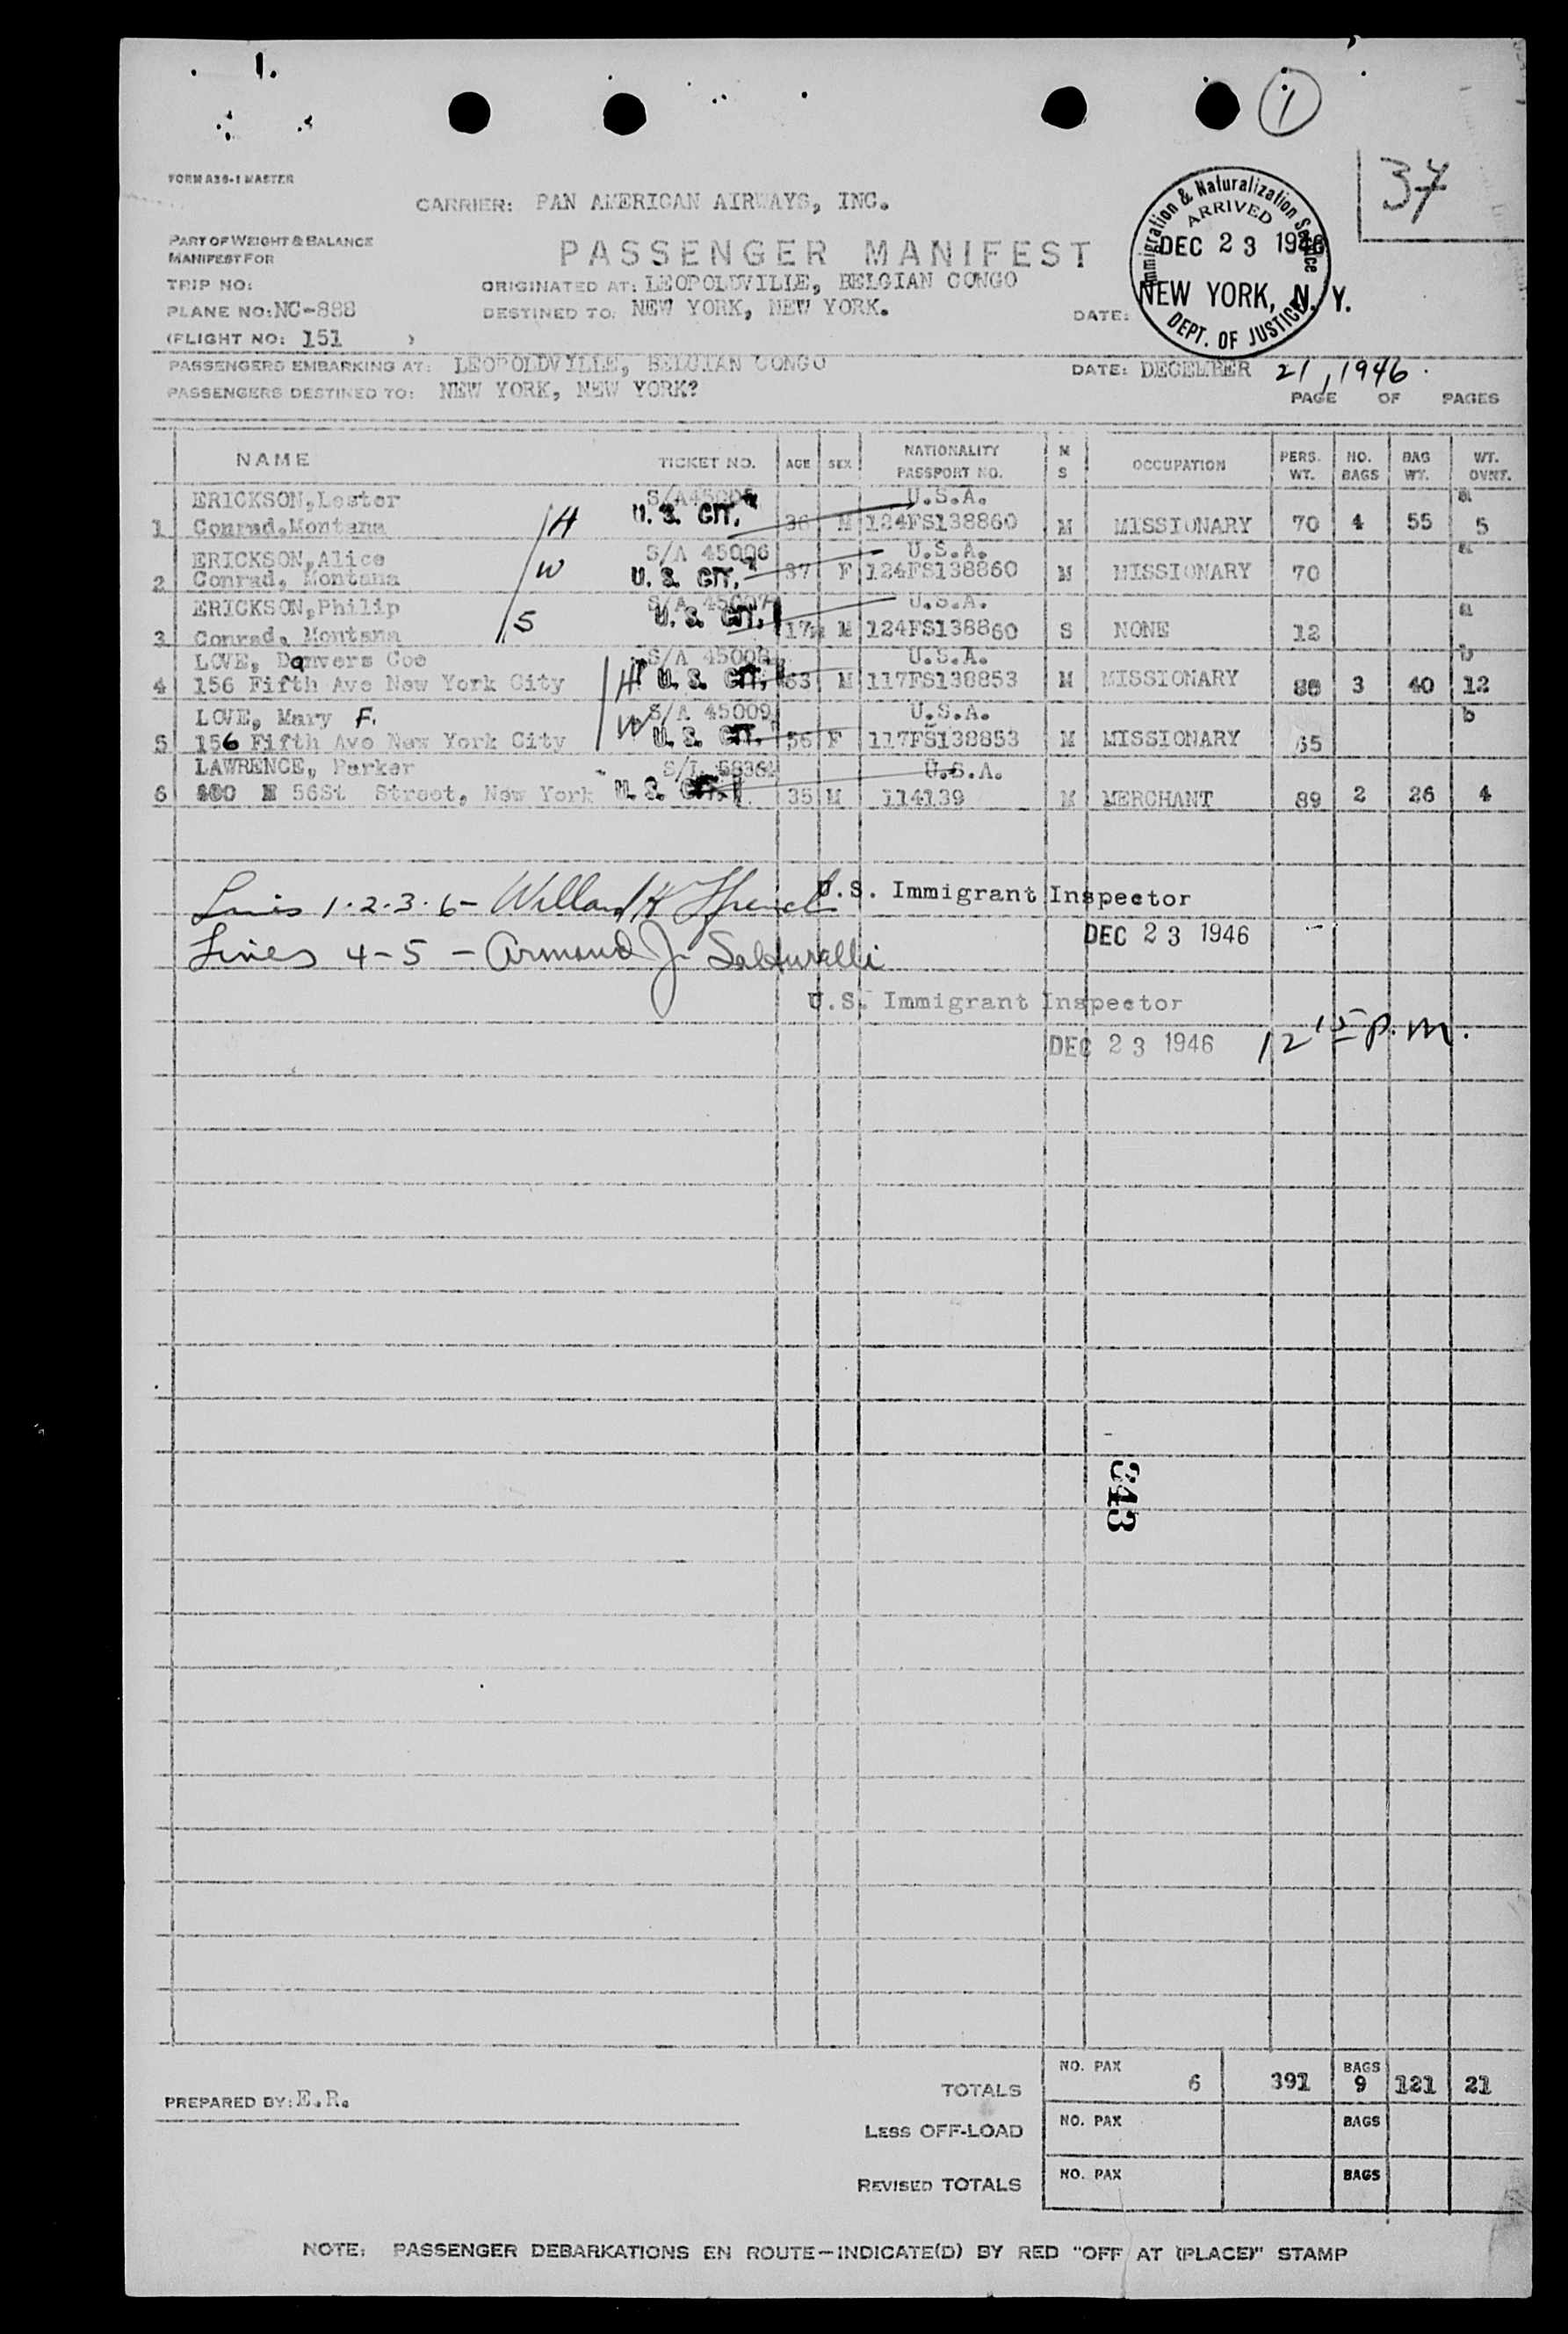 1.
1
37
FORM A36-1 MASTER
CARRIER: PAN AMERICAN AIRWAYS, INC.
Immigration & Naturalization Service
ARRIVED
DEC 23 1946
NEW YORK, N. Y.
DEPT. OF JUSTICE
PART OF WEIGHT & BALANCE
MANIFEST FOR
PASSENGER MANIFEST
TRIP NO:
ORIGINATED AT: LEOPOLDVILLE, BELGIAN CONGO
PLANE NO: NC-888
DESTINED TO: NEW YORK, NEW YORK.
DATE:
(FLIGHT NO: 151 )
PASSENGERS EMBARKING AT: LEOPOLDVILLE, BELGIAN CONGO
DATE: DECEMBER 21, 1946.
PASSENGERS DESTINED TO: NEW YORK, NEW YORK?
PAGE OF PAGES
NAME TICKET NO. AGE SEX NATIONALITY PASSPORT NO. M S OCCUPATION PERS. WT. NO. BAGS BAG WT. WT. OVNT.
ERICKSON, Lester U.S.A. a
1 Conrad, Montana H U. S. CIT. 36 M 124FS138860 M MISSIONARY 70 4 55 5
ERICKSON, Alice S/A 45006 U.S.A. a
2 Conrad, Montana W U. S. CIT. 37 F 124FS138860 M MISSIONARY 70
ERICKSON, Philip S/A 45007 U.S.A. a
3 Conrad, Montana S U. S. CIT. M 124FS138860 S NONE 12
LOVE, Danvers Coe S/A 45008 U.S.A. b
4 156 Fifth Ave New York City H U. S. CIT. 63 M 117FS138853 M MISSIONARY 3 40 12
LOVE, Mary F. S/A 45009 U.S.A. b
5 156 Fifth Ave New York City W U. S. CIT. 56 F 117FS138853 M MISSIONARY
LAWRENCE, Parker U.S.A.
6 56St Street, New York U. S. CIT. 35 M 114139 M MERCHANT 89 2 26 4
Lines 1.2.3.6 - U.S. Immigrant Inspector
DEC 23 1946
Lines 4-5 - Armand J.
U.S. Immigrant Inspector
DEC 23 1946 12 15 p.m.
343
NO. PAX BAGS
TOTALS 6 391 9 121 21
PREPARED BY: E.R.
LESS OFF-LOAD NO. PAX BAGS
REVISED TOTALS NO. PAX BAGS
NOTE: PASSENGER DEBARKATIONS EN ROUTE-INDICATE(D) BY RED "OFF AT (PLACE)" STAMP